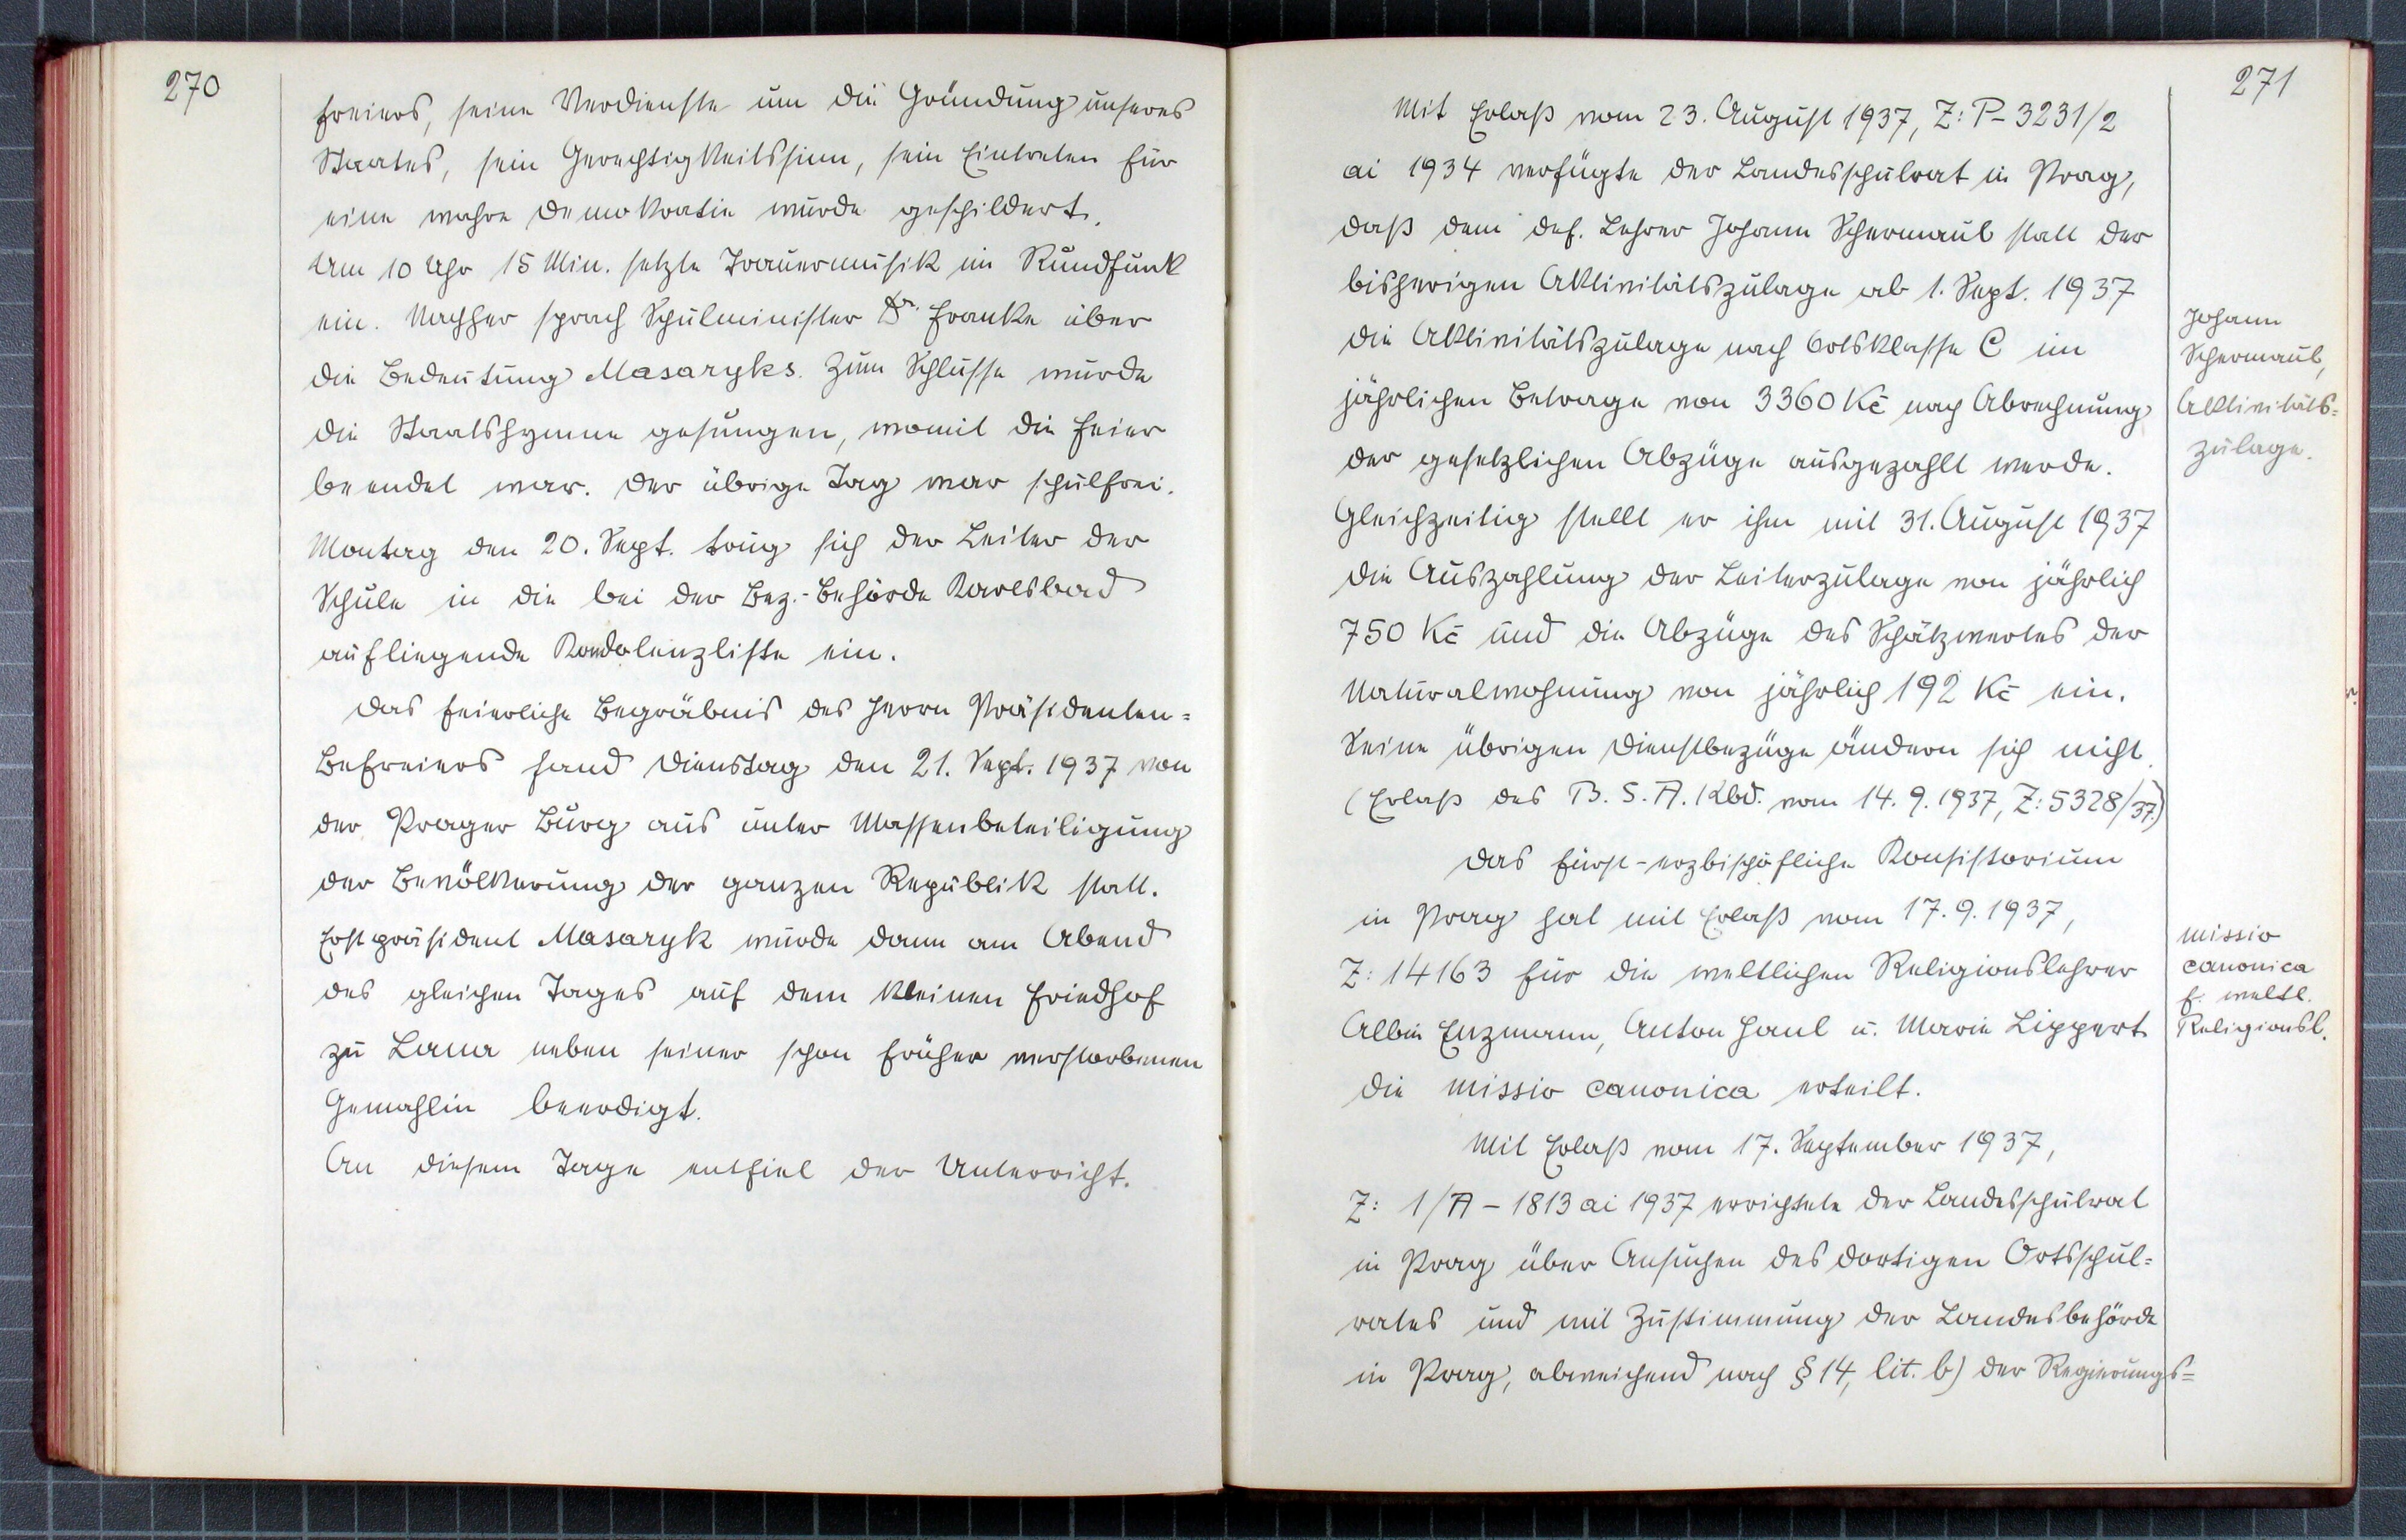 270
freiers, seine Verdienste um die Gründung unseres
Staates, sein Gerechtigkeitssinn, sein Eintreten für
eine wahre Demokratie wurde geschildert.
Um 10 Uhr 15 Min. setzte Trauermusik im Rundfunk
ein. Nachher sprach Schulminister Dr. Franke über
die Bedeutung Masaryks. Zum Schlusse wurde
die Staatshymne gesungen, womit die Feier
beendet war. Der übrige Tag war schulfrei.
Montag den 20. Sept. trug sich der Leiter der
Schule in die bei der Bez.-Behörde Karlsbad
aufliegende Kondolenzliste ein.
Das feierliche Begräbnis des Herrn Präsidenten=
Befreiers fand Dienstag den 21. Sept. 1937 von
der Prager Burg aus unter Massenbeteiligung
der Bevölkerung der ganzen Republik statt.
Erstpräsident Masaryk wurde dann am Abend
des gleichen Tages auf dem kleinen Friedhof
zu Lana neben seiner schon früher verstorbenen
Gemahlin beerdigt.
An diesem Tage entfiel der Unterricht.
271
Mit Erlaß vom 23. August 1937, Z: P-3231/2
ai 1934 verfügte der Landesschulrat in Prag,
daß dem def. Lehrer Johann Schermaul statt der
bisherigen Aktivitätszulage ab 1. Sept. 1937
die Aktivitätszulage nach Ortsklasse C im
jährlichen Betrage von 3360 Kč nach Abrechnung
der gesetzlichen Abzüge ausgezahlt werde.
Gleichzeitig stellt er ihm mit 31. August 1937
die Auszahlung der Leiterzulage von jährlich
750 Kč und die Abzüge des Schätzwertes der
Naturalwohnung von jährlich 192 Kč ein.
Seine übrigen Dienstbezüge ändern sich nicht.
(Erlaß des B. S. A. Kbd. vom 14. 9. 1937, Z: 5328/37.)
Johann
Schermaul,
Aktivitäts=
zulage.
Das fürst-erzbischöfliche Konsistorium
in Prag hat mit Erlaß vom 17. 9. 1937,
Z: 14163 für die weltlichen Religionslehrer
Albin Enzmann, Anton Haul u. Marie Lippert
die missio canonica erteilt.
missio
canonica
f. weltl.
Religionsl.
Mit Erlaß vom 17. September 1937,
Z: 1/A – 1813 ai 1937 errichtete der Landesschulrat
in Prag über Ansuchen des dortigen Ortsschul=
rates und mit Zustimmung der Landesbehörde
in Prag, abweichend nach § 14, lit. b) der Regierungs=